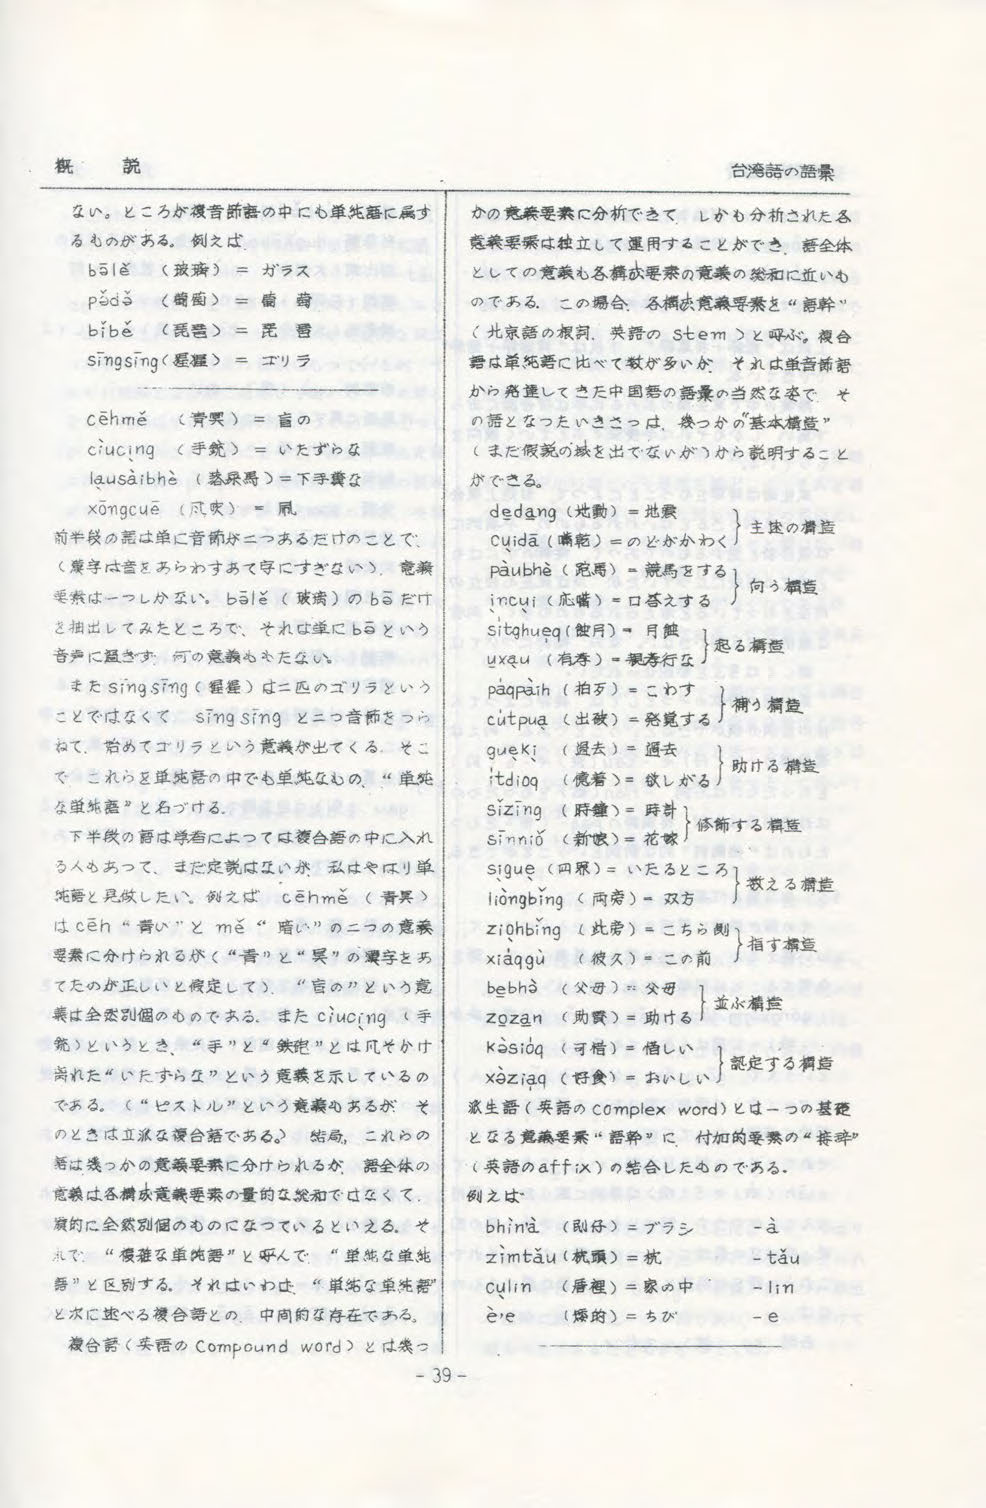 概　　説
台湾語の語彙
ない。ところが複音節語の中にも単純語に属す
るものがある。例えば
bōlě （玻璃） = ガラス
（葡萄） = 葡　萄
bǐbě （琵琶） = 琵　琶
sīngsīng(猩猩) = ゴリラ
cēhmě （青冥） = 盲の
cìucịng （手銃） = いたずらな
（落屎馬）=下手糞な
xōngcuē （風吹） = 凧
前半段の語は単に音節が二つあるだけのことで、
（漢字は音をあらわすあて字にすぎない）、意義
要素は一つしかない。bōlě（玻璃）のbōだけ
を抽出してみたところで、それは単にbōという
音声に過ぎず、何の意義ももたない。
またsīngsīng（猩猩）は二匹のゴリラという
ことではなくて、sīngsīngと二つ音節をつら
ねて、始めてゴリラという意義が出てくる。そこ
で、これらを単純語の中でも単純なもの、“単純
な単純語”と名づける。
下半段の語は学者によっては複合語の中に入れ
る人もあって、まだ定説はないが、私はやはり単
純語と見做したい。例えば、cēhmě（青冥）
はcēh“青い”とmě“暗い”の二つの意義
要素に分けられるが（“青”と“冥”の漢字をあ
てたのが正しいと仮定して）、“盲の”という意
義は全然別個のものである。またcìucịng（手
銃）というとき、“手”と“鉄砲”とは凡そかけ
離れた“いたずらな”という意義を示しているの
である。（“ピストル”という意義もあるが、そ
のときは立派な複合語である。）結局、これらの
語は幾つかの意義要素に分けられるが、語全体の
意義は各構成意義要素の量的な総和ではなくて、
質的に全然別個のものになっているといえる。そ
れで、“複雑な単純語”と呼んで、“単純な単純
語”と区別する。それはいわば、“単純な単純語”
と次に述べる複合語との、中間的な存在である。
複合語（英語のCompound word）とは幾つ
かの意義要素に分析できて、しかも分析された各
意義要素は独立して運用することができ、語全体
としての意義も各構成要素の意義の総和に近いも
のである。この場合、各構成意義要素を“語幹”
（北京語の根詞、英語のstem）と呼ぶ。複合
語は単純語に比べて数が多いが、それは単音節語
から発達してきた中国語の語彙の当然な姿で、そ
の語となったいきさつは、幾つかの“基本構造”
（まだ仮説の域を出でないが）から説明すること
ができる。
dẹdạng（地動）=地震
cụidā（嘴乾）=のどがかわく
主述の構造
pàubhè（跑馬）= 競馬をする
ịncụi（応嘴）=口答えする
向う構造
sịtghueq(蝕月) = 月蝕
ụxạu（有孝）= 親孝行な
起る構造
（拍歹）= こわす
cụ́tpụa（出破）= 発覚する
補う構造
guekị （過去）= 過去
ítdioq （億着）= 欲しがる
助ける構造
sǐzīng （時鐘）= 時計
sīnniǒ （新娘）= 花嫁
修飾する構造
sịguẹ（四界）= いたるところ
liòngbǐng（両旁）= 双方
数える構造
ziọhbǐng （此旁）= こちら側
xiáqgù （彼久）= この前
指す構造
bẹbhò （父母）= 父母
zọzạn （助賛）= 助ける
並ぶ構造
kəsióq （可惜）= 惜しい
xəziaq （好食）= おいしい
認定する構造
派生語（英語のcomplex word）とは一つの基礎
となる意義要素“語幹”に、付加的要素の“接辞”
（英語のaffix）の結合したものである。
例えば
bhìn'à （刷仔）=ブラシ　-à
zìmtǎu（枕頭）=枕　-tǎu
culin （厝裡）=家の中　-lin
è'e （矮的）=ちび　-e
- 39 -